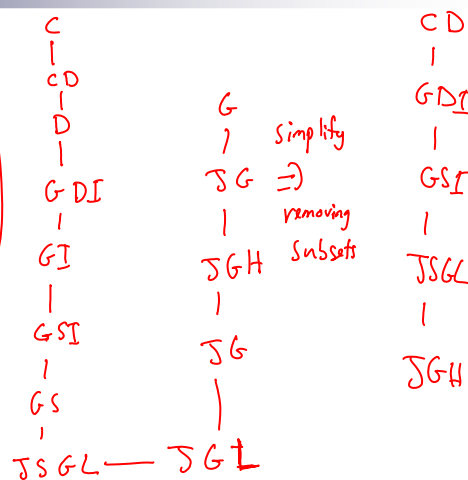 C
CD
D
GDI
GI
GSI
GS
JSGL
G
JG
JGH
JG
JGL
simplify
=)
removing
subsets
CD
GDI
GSI
JSGL
JGH